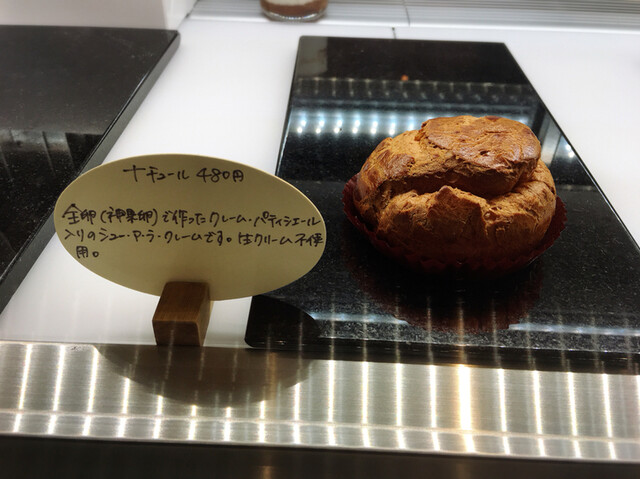 ナチュール 480円
全卵(神果卵)で作ったクレーム・パティシエール
入りのシュー・ア・ラ・クレームです。生クリーム不使
用。